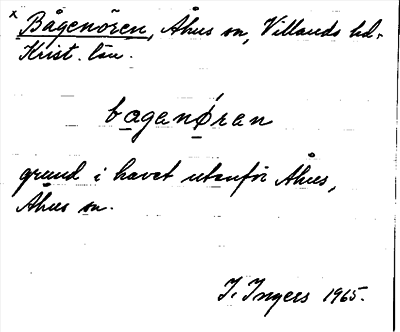 x Bågenören, Åhus sn, Villands hd.
Krist. län.
bagenøren
grund i havet utanför Åhus,
Åhus sn.
I. Ingers 1965.